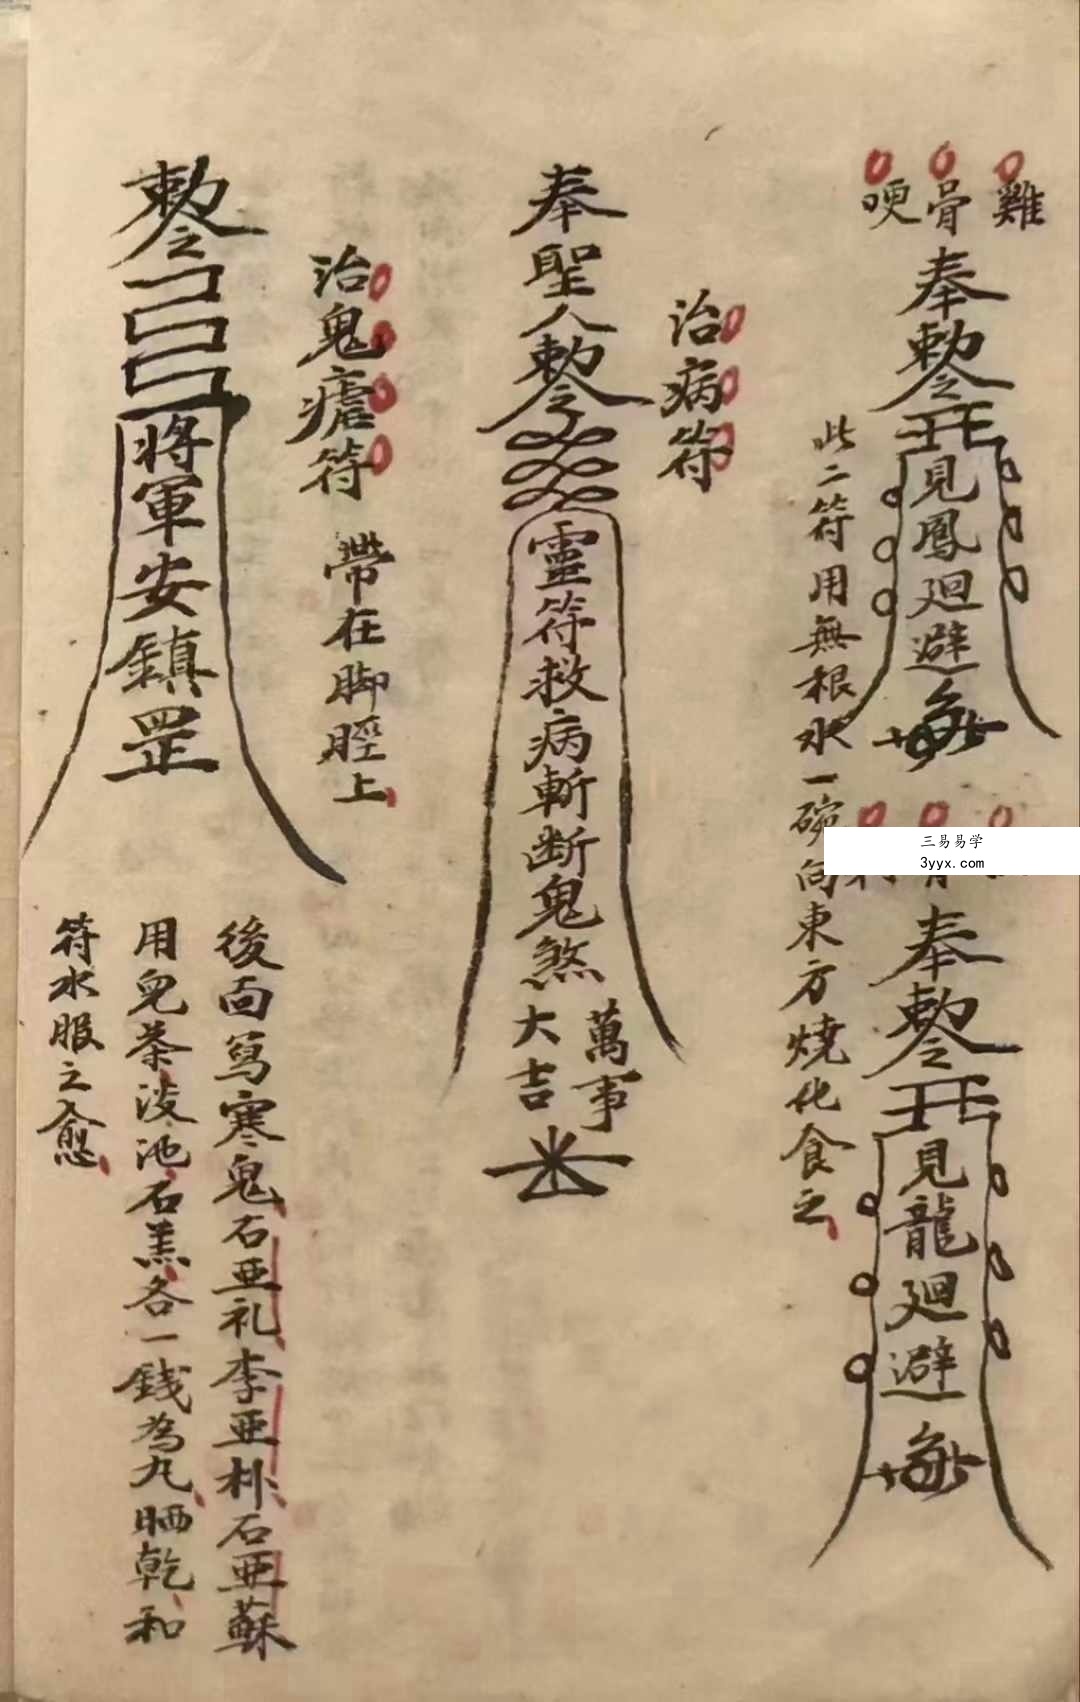 雞骨哽
奉勅令
見鳳廻避
三易易学
3yyx.com
奉勅令
見龍廻避
此二符用無根水一碗向東方燒化食之
治病符
奉聖人勅令
靈符救病斬断鬼煞
萬事
大吉
治鬼瘧符 帶在脚脛上
勅令
將軍安鎮罡
後面写寒鬼石亞礼李亞朴石亞蘇
用兒茶淡池石羔各一錢為丸晒乾和
符水服之愈